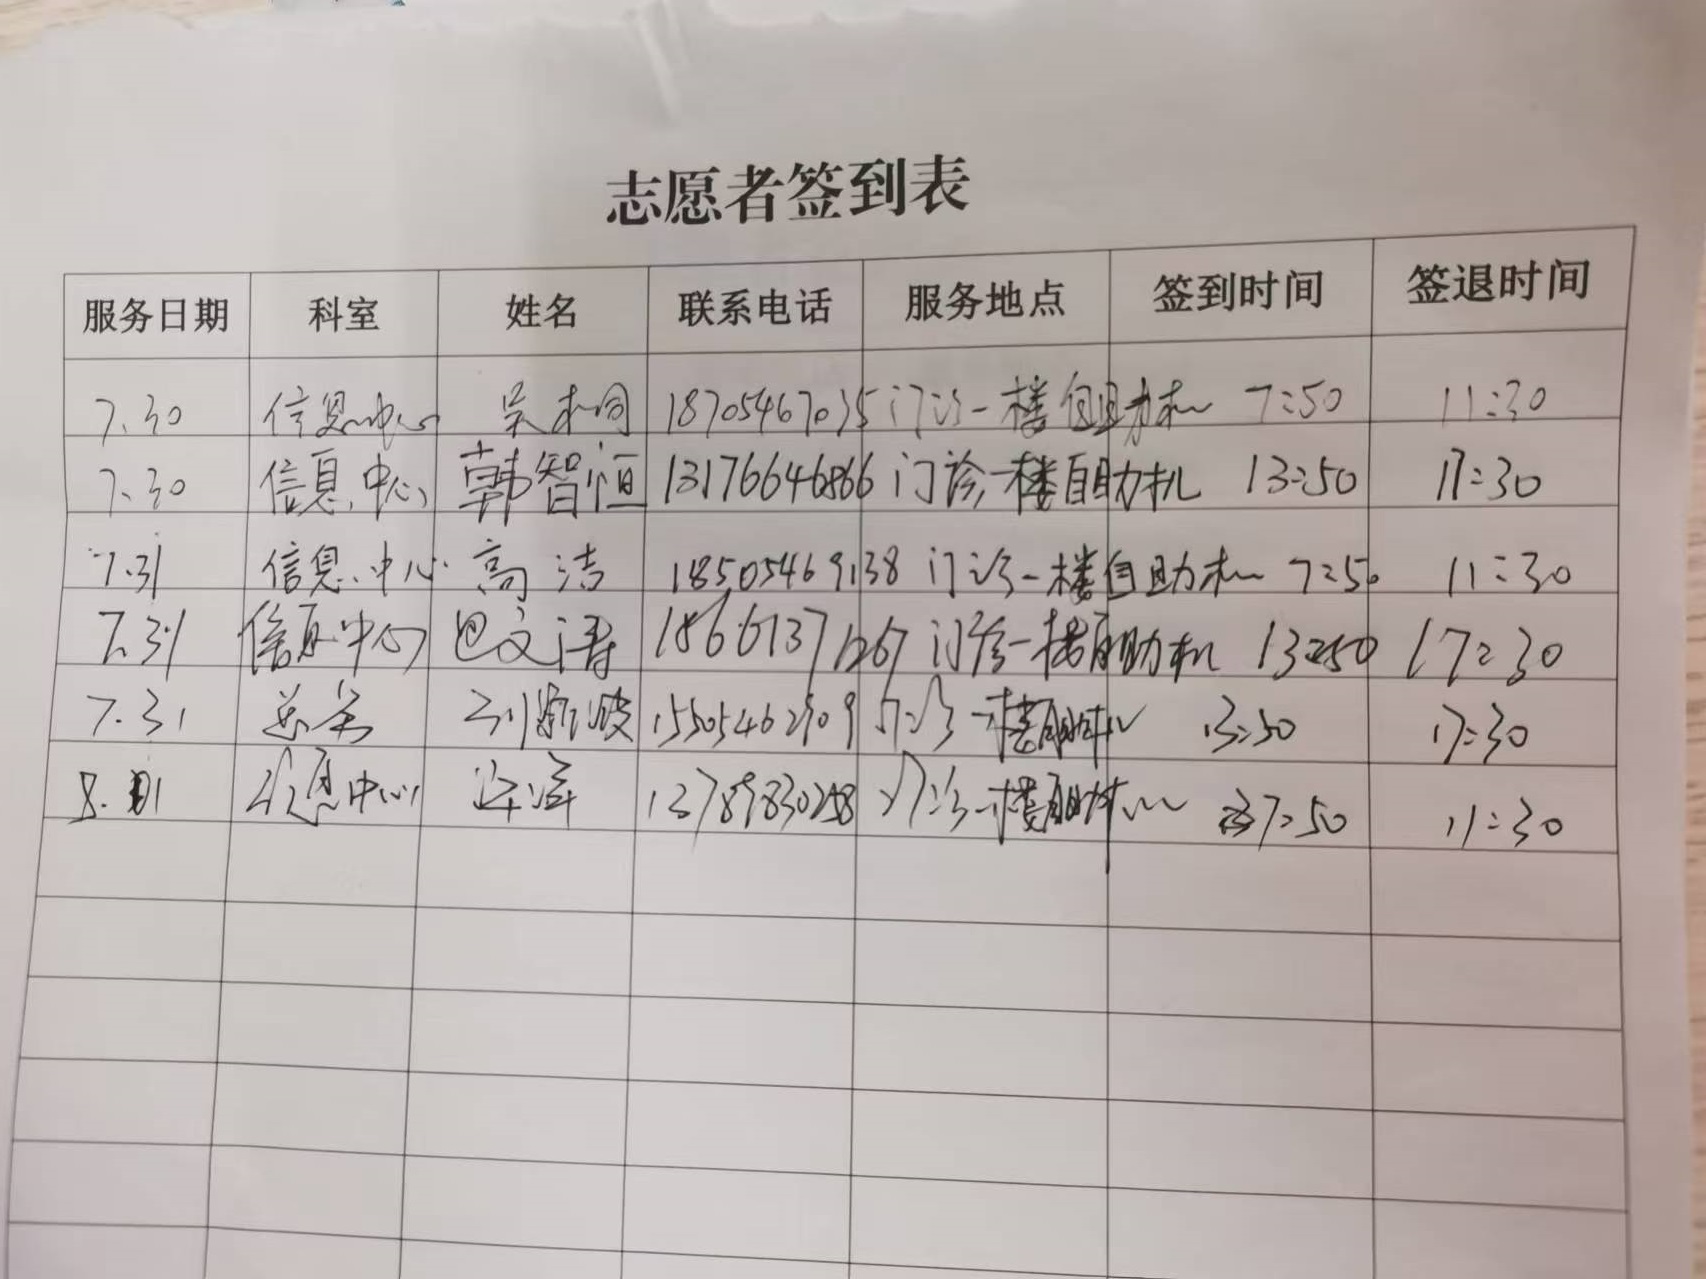 志愿者签到表
服务日期 科室 姓名 联系电话 服务地点 签到时间 签退时间
7.30 信息中心 吴 18705467035 门诊一楼自助机 7:50 11:30
7.30 信息中心 韩智恒 13176646866 门诊一楼自助机 13:50 17:30
7.31 信息中心 高洁 18505469138 门诊一楼自助机 7:50 11:30
7.31 信息中心 门诊一楼自助机 13:50 17:30
7.31 15505462909 门诊一楼自助机 13:50 17:30
8.1 信息中心 门诊一楼自助机 7:50 11:30